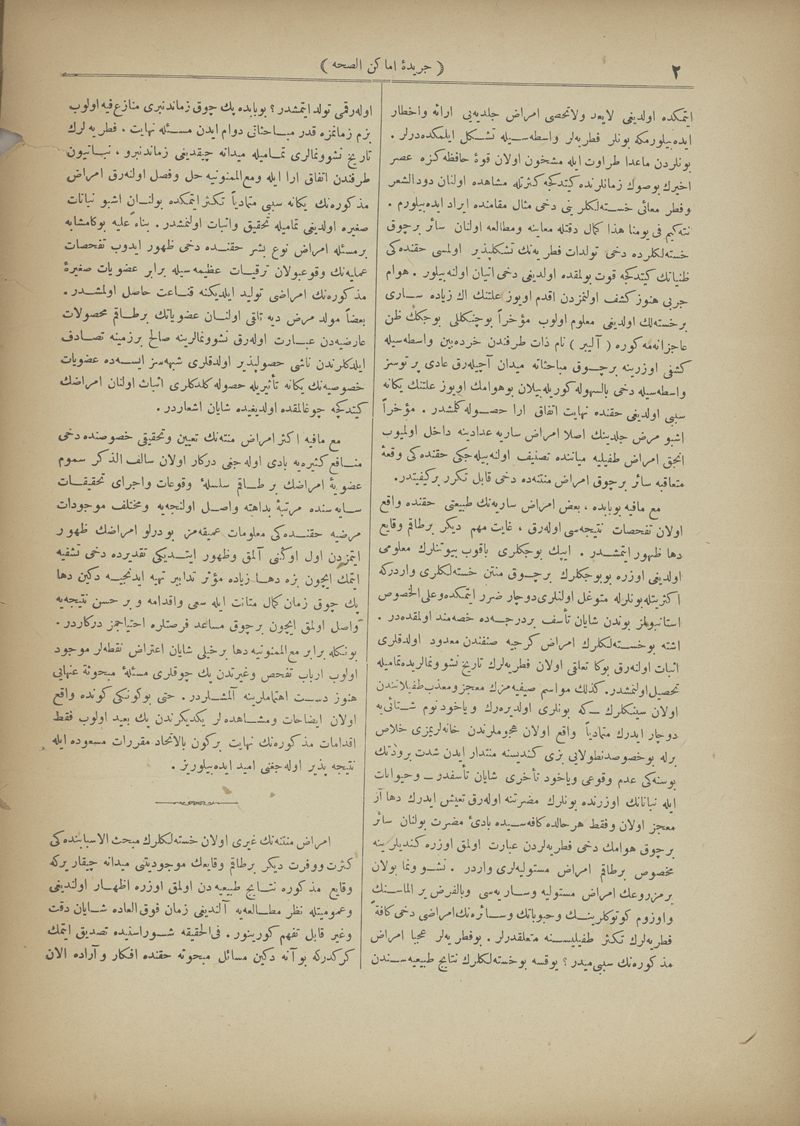 ٢
( جريدۀ اماكن الصحه )
ايتمكده اولديغى لايعد ولاتحصى امراض جلديه يى ارائه واخطار
ايده بيلورمكه بونلر فطريه لر واسطه سيله تشكل ايلمكده درلر .
بونلردن ماعدا طراوت ايله مشحون اولان قوۀ حافظه كزه عصر
اخيرك بوصوك زمانلرنده كيتدكجه كثرتله مشاهده اولنان دودالشعر
وفطر معائى خسته لكلرينى دخى مثال مقامنده ايراد ايده بيلورم .
نته كيم فى يومنا هذا كمال دقتله معاينه ومطالعه اولنان سائر برچوق
خسته لكلرده دخى تولدات فطريه نك تشكلپذير اولمسى حقنده كى
ظنياتك كيتدكجه قوت بولمقده اولديغى دخى اتيان اولنه بيلور . هوام
جربى هنوز كشف اولنمزدن اقدم اويوز علتنك اك زياده سارى
برخسته لك اولديغى معلوم اولوب مؤخراً بوچنكللى بوجكك ظن
عاجزانه مه كوره ( آليبر ) نام ذات طرفندن خرده بين واسطه سيله
كشفى اوزرينه برچوق مباحثاته ميدان آچيله رق عادى پرتوسز
واسطه سيله دخى بالسهوله كوريله بيلان بوهوامك اويوز علتنك يكانه
سببى اولديغى حقنده نهايت اتفاق ارا حصوله كلمشدر . مؤخراً
اشبو مرض جلدينك اصلا امراض ساريه عدادينه داخل اولميوب
انجق امراض طفيليه مياننده تصنيف اولنه بيله جكى حقنده كى وقعۀ
متعاقبه سائر برچوق امراض منتنه ده دخى قابل تكرر بركيفيتدر.
مع مافيه بوبابده ، بعض امراض ساريه نك طبيعتى حقنده واقع
اولان تفحصات نتيجه سى اوله رق ، غايت مهم ديكر برطاقم وقايع
دها ظهور ايتمشدر . ايپك بوجكلرى باقوب بيوتنلرك معلومى
اولديغى اوزره بوبوجكلرك برچوق منتن خسته لكلرى واردركه
اكثريتله بونلرله متوغل اولنلرى دوچار ضرر ايتمكده وعلى الخصوص
استانبولمز بوندن شايان تأسف بردرجه ده حصه مند اولمقده در .
اشته بوخسته لكلرك امراض كرجيه صنفندن معدود اولدقلرى
اثبات اولنه رق بوكا تعلقى اولان فطريه لرك تاريخ نشو ونمالريده تماميله
تحصيل اولنمشدر. كذلك مواسم صيفيه مزك معجز ومعذب طفيلاتندن
اولان سينكلرك ـ كه بونلرى اولديره رك وياخود نوم شتائى يه
دوچار ايدرك متمادياً واقع اولان هجوملرندن خانه لريمزى خلاص
برله بوخصوصده طولايى بزى كنديسنه منتدار ايدن شدت برودتك
بوسنه كى عدم وقوعى وياخود تأخرى شايان تأسفدر ـ وحيوانات
ايله نباتاتك اوزرنده بونلرك مضرتنه اوله رق تعيش ايدرك دها آز
معجز اولان وفقط هرحالده كافه سيده بادئ مضرت بولنان سائر
برچوق هوامك دخى فطريه لردن عبارت اولمق اوزره كنديلرينه
مخصوص برطاقم امراض مستوليه لرى واردر . نشو ونما بولان
برمزروعك امراض مستوليه وساريه سى وبالفرض پر الماسنك
واوزوم كوتوكلرينك وحبوباتك وسائره نك امراضى دخى كافۀ
فطريه لرك تكثر طفيليسنه متعلقدرلر . بوفطريه لر عجبا امراض
مذكوره نك سببى ميدر ؟ يوقسه بوخسته لكلرك نتايج طبيعيه سندن
اوله رقمى تولد ايتمشدر ؟ بوبابده پك چوق زماندنبرى منازع فيه اولوب
بزم زمانمزه قدر مباحثاتى دوام ايدن مسئله نهايت ، فطريه لرك
تاريخ نشوونمالرى تماميله ميدانه چيقديغى زماندنبرو ، نباتيون
طرفندن اتفاق ارا ايله ومع الممنونيه حل وفصل اولنه رق امراض
مذكوره نك يكانه سببى متمادياً تكثر ايتمكده بولنان اشبو نباتات
صغيره اولديغى تماميله تحقيق واثبات اولنمشدر . بناءً عليه بوكامشابه
برمسئله امراض نوع بشر حقنده دخى ظهور ايدوب تفحصات
عمليه نك وقوعبولان ترقيات عظيمه سيله برابر عضويات صغيرۀ
مذكوره نك امراضى توليد ايلديكنه قناعت حاصل اولمشدر .
بعضاً مولد مرض ديه تلقى اولنان عضوياتك برطاقم محصولات
عارضيه دن عبارت اوله رق نشوونمالرينه صالح برزمينه تصادف
ايلدكلرندن ناشى حصولپذير اولدقلرى شبهه سز ايسه ده عضويات
خصوصيه نك يكانه تأثيريله حصوله كلدكلرى اثبات اولنان امراضك
كيتدكجه چوغالمقده اولديغيده شايان اشعاردر .
مع مافيه اكثر امراض منتنه نك تعيين وتحقيقى خصوصنده دخى
منافع كثيره يه بادى اوله جغى دركار اولان سالف الذكر سموم
عضويۀ امراضك برطاقم سلسلۀ وقوعات واجراى تحقيقات
سايه سنده مرتبۀ بداهته واصل اولنجه يه ومختلف موجودات
مرضيه حقنده كى معلومات عميقه مز بودرلو امراضك ظهور
ايتمزدن اول اوكنى آلمق وظهور ايتديكى تقديرده دخى تشفيه
ايتمك ايچون بزه دها زياده مؤثر تدابير تهيه ايدنجيه دكين دها
پك چوق زمان كمال متانت ايله سعى واقدامه و بر حسن نتيجه يه
واصل اولمق ايچون برچوق مساعد فرصتلره احتياجمز دركاردر .
بونكله برابر مع الممنونيه دها برخيلى شايان اعتراض نقطه لر موجود
اولوب ارباب تفحص وغيرتدن پك چوقلرى مسئلۀ مبحوثۀ عنهايى
هنوز دست اهتماملرينه آلمشلردر . حتى بوكونكى كونده واقع
اولان ايضاحات ومشاهده لر يكديكرندن پك بعيد اولوب فقط
اقدامات مذكوره نك نهايت بركون بالاتحاد مقررات مسعوده ايله
نتيجه پذير اوله جغنى اميد ايده بيلوريز .
امراض منتنه نك غيرى اولان خسته لكلرك مبحث الاسبابنده كى
كثرت ووفرت ديكر برطاقم وقايعك موجوديتنى ميدانه چيقاريركه
وقايع مذكوره نتايج طبيعيه دن اولمق اوزره اظهار اولنديغى
وعموميتله نظر مطالعه يه آلنديغى زمان فوق العاده شايان دقت
وغير قابل تفهم كورينور . فى الحقيقه شوراسنيده تصديق ايتمك
كركدركه بوآنه دكين مسائل مبحوثه حقنده افكار وآراده الان